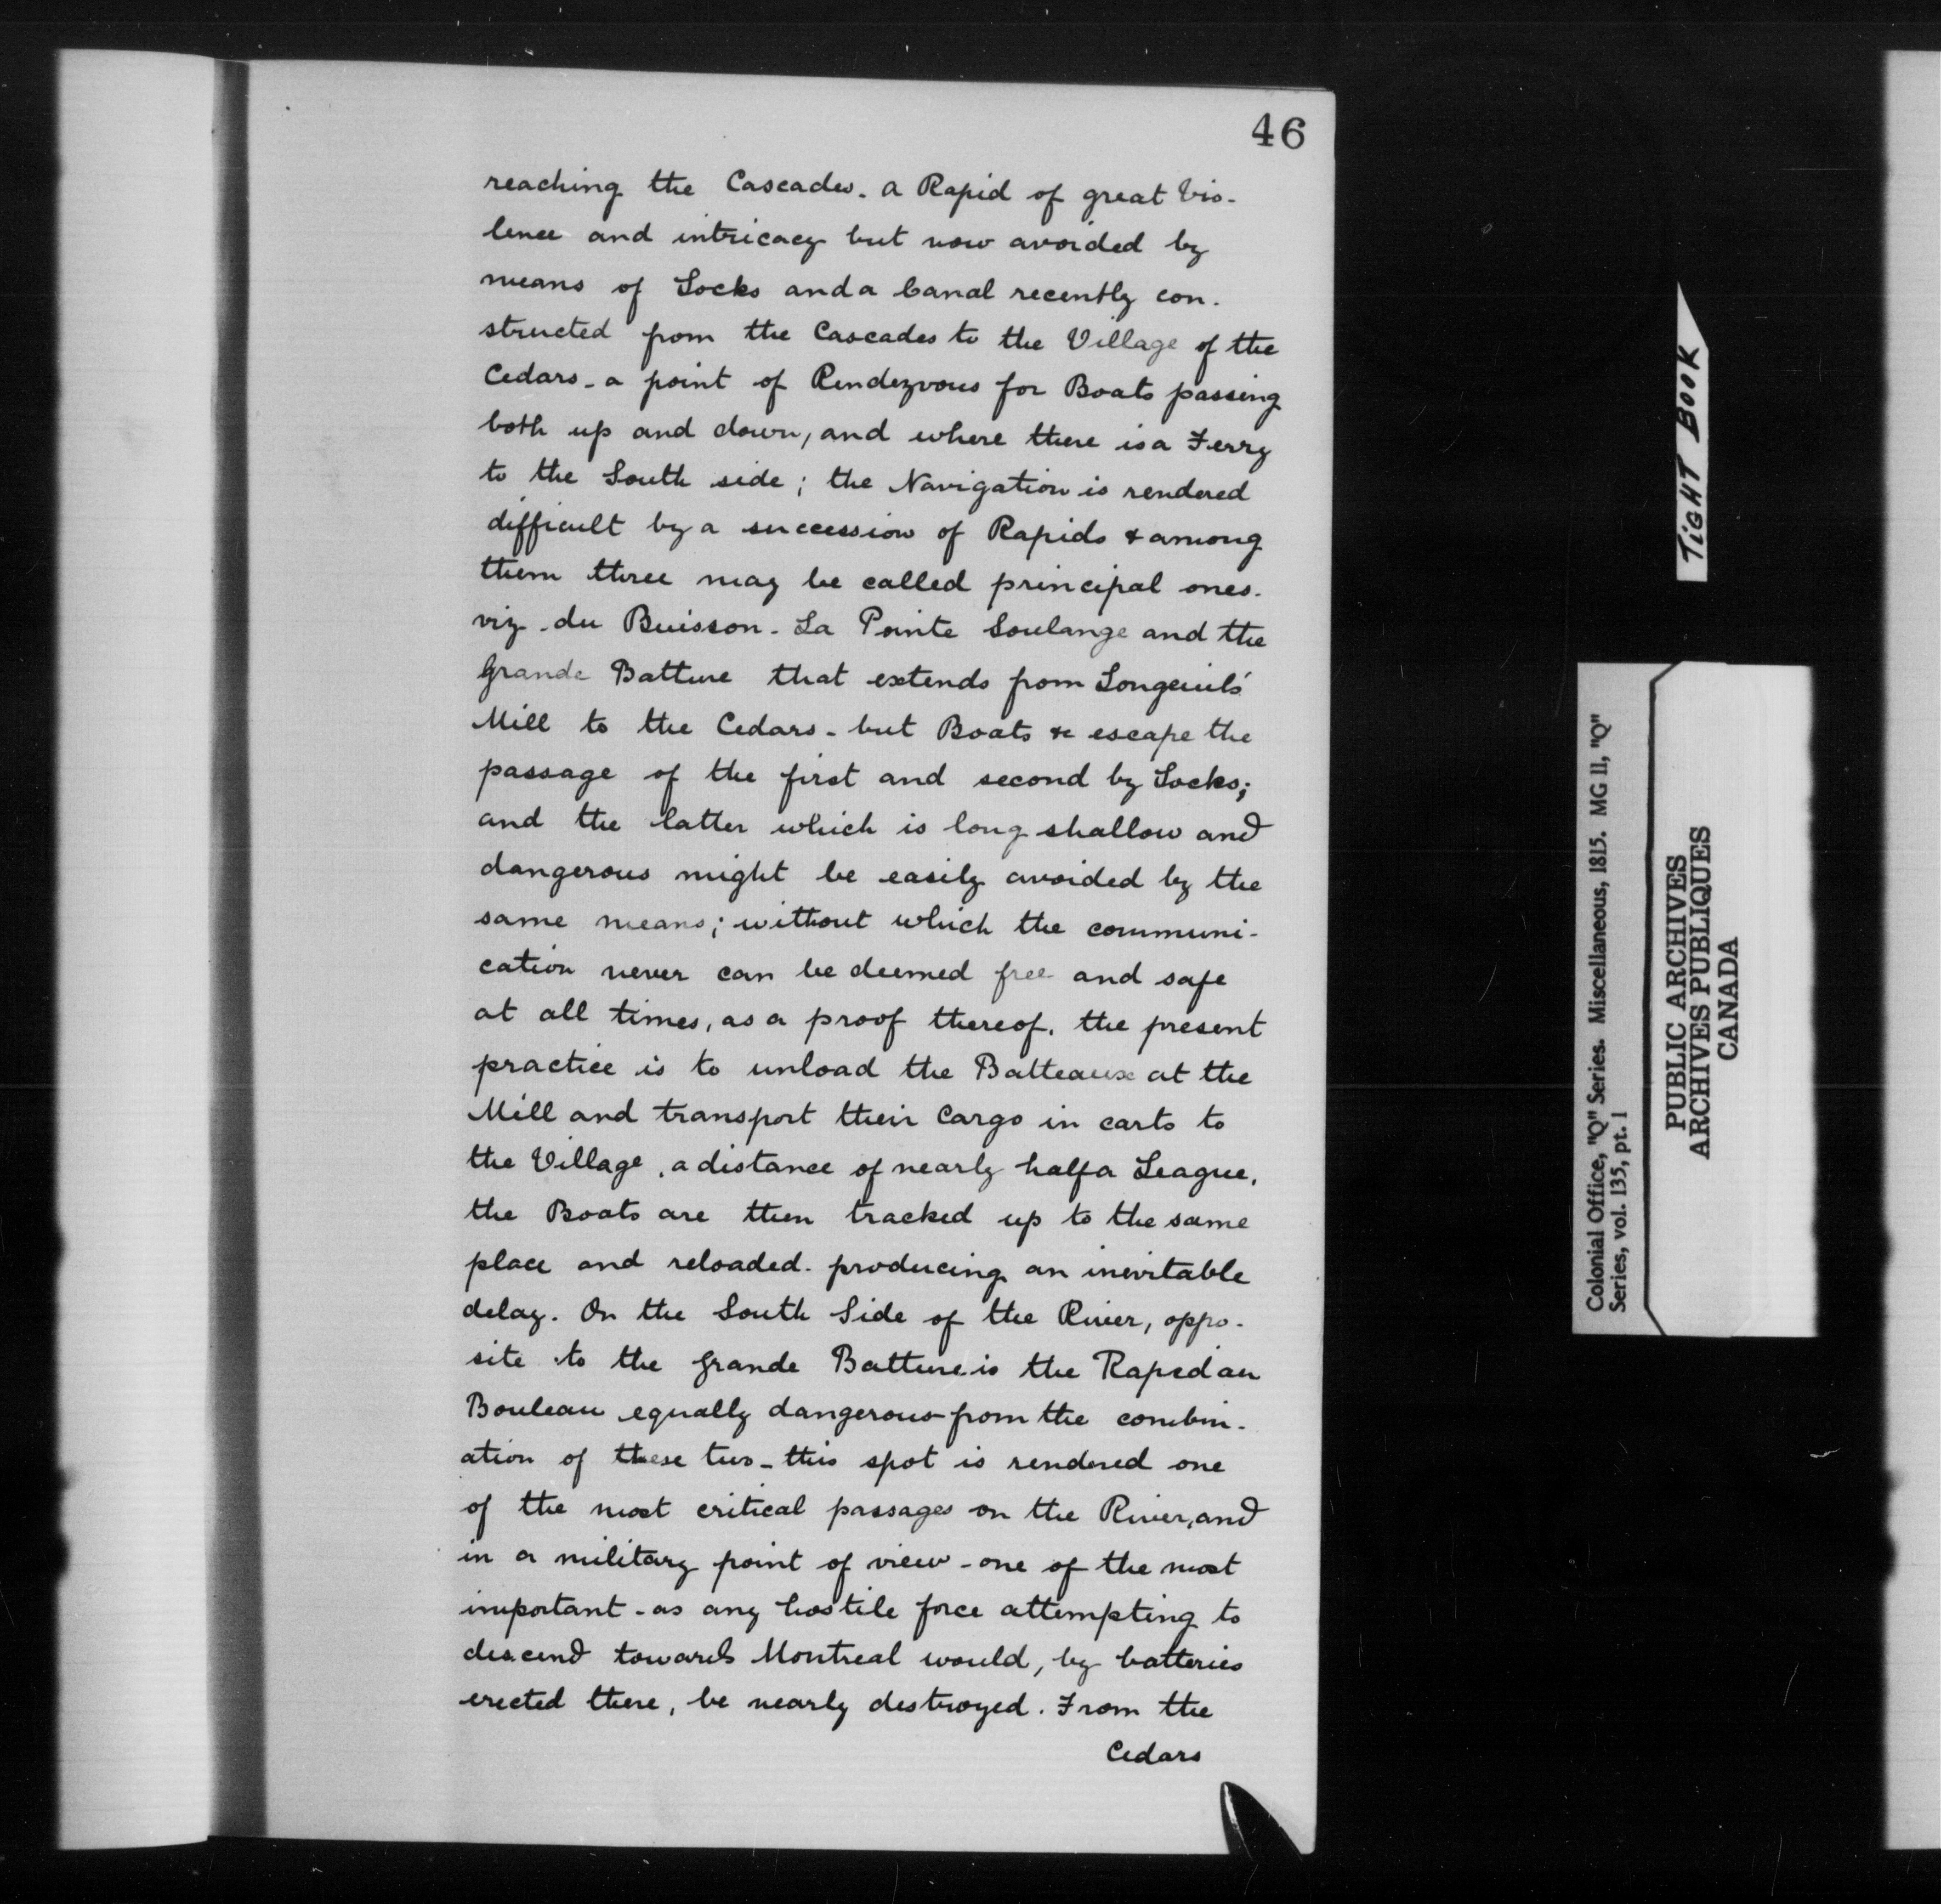 46
reaching the Cascades. a Rapid of great vio-
lence and intricacy but now avoided by
means of Locks and a Canal recently con-
structed from the Cascades to the Village of the
Cedars - a point of Rendezvous for Boats passing
both up and down, and where there is a Ferry
to the South side; the Navigation is rendered
difficult by a succession of Rapids & among
them three may be called principal ones.
viz - du Buisson - La Pointe Soulange and the
Grande Batture that extends from Longeuils'
Mill to the Cedars - but Boats &c escape the
passage of the first and second by Locks;
and the latter which is long shallow and
dangerous might be easily avoided by the
same means; without which the communi-
cation never can be deemed free and safe
at all times, as a proof thereof, the present
practice is to unload the Batteaux at the
Mill and transport their Cargo in carts to
the Village, a distance of nearly half a League,
the Boats are then tracked up to the same
place and reloaded - producing an inevitable
delay. On the South Side of the River, oppo-
site to the Grande Batture is the Rapid au
Bouleau equally dangerous from the combin-
ation of these two - this spot is rendered one
of the most critical passages on the River, and
in a military point of view - one of the most
important - as any hostile force attempting to
descend towards Montreal would, by batteries
erected there, be nearly destroyed. From the
Cedars
TIGHT BOOK
Colonial Office, "Q" Series. Miscellaneous, 1815. MG 11, "Q"
Series, vol. 135, pt. 1
PUBLIC ARCHIVES
ARCHIVES PUBLIQUES
CANADA